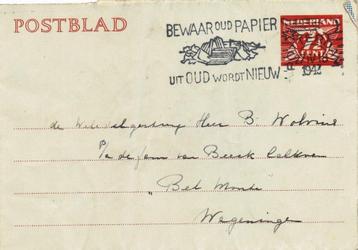 POSTBLAD
BEWAAR OUD PAPIER
UIT OUD WORDT NIEUW
NEDERLAND
7½
CENT
1942
de Heer B.
P/a de fam van Beeck
"Bel Monte"
Wageningen